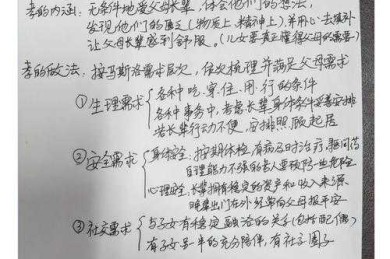 孝的内涵：无条件地爱父母长辈，体会他们的想法，
发现他们的匮乏（物质上、精神上）并用心去填补
让父母长辈感到舒服。（儿女要真正懂得父母的需要）
孝的做法，按马斯洛需求层次，依次梳理并满足父母需求
①生理需求
各种吃、穿、住、用、行的条件
各种事务中，考虑长辈身体条件妥善安排
若长辈行动不便，安排照顾起居
②安全需求
身体安全：按期体检，有病及时治疗，
自理能力不强的老人要预防一些危险
心理安全：长辈拥有稳定的资产和收入来源，
晚辈出门在外经常向父母报平安
③社交需求
与子女有稳定融洽的关系（包括配偶）
有子女安一年的充分陪伴，有社子圈子